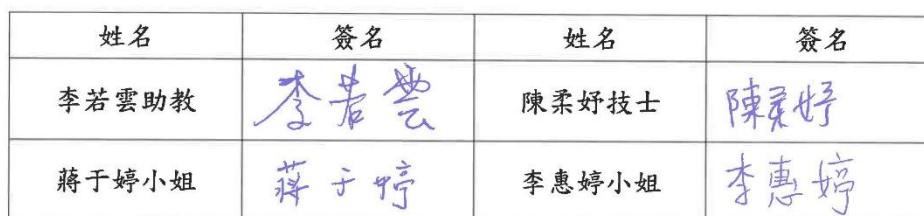 姓名 簽名 姓名 簽名
李若雲助教 李若雲 陳柔妤技士 陳柔妤
蔣于婷小姐 蔣于婷 李惠婷小姐 李惠婷